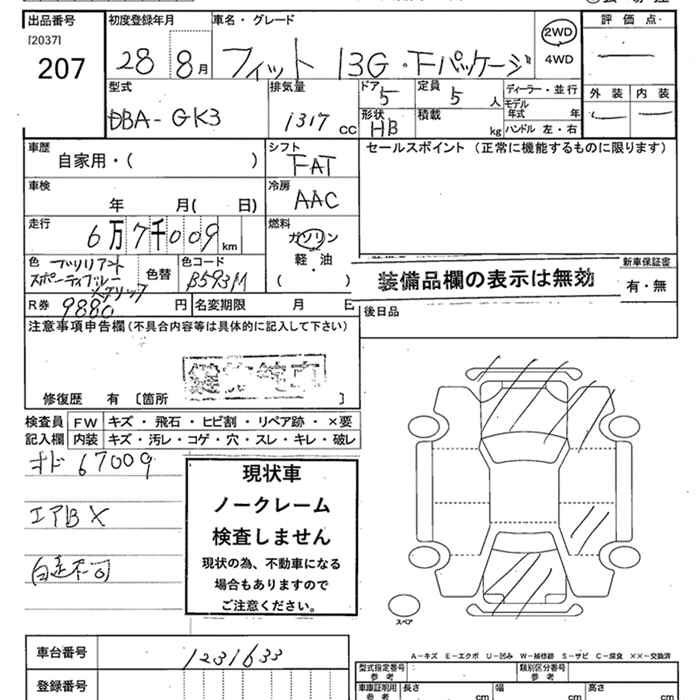 出品番号 初度登録年月 車名・グレード 評価点
[2037] 207 28 8月 フィット 13G・Fパッケージ 2WD 4WD
外装 内装
型式 排気量 ドア 5 定員 5人 ディーラー・並行
DBA-GK3 1317 cc 形状 HB 積載 kg モデル年式 年
ハンドル 左・右
車歴 シフト セールスポイント (正常に機能するものに限ります)
自家用・( ) FAT
車検 冷房
年 月( 日) AAC
走行 燃料
6万7千009km ガソリン
軽・油
( )
色 ブリリアントスポーティブルーメタリック 色替 色コード B593M
装備品欄の表示は無効
新車保証書
有・無
R券 9880 円 名変期限 月 日
後日品
注意事項申告欄(不具合内容等は具体的に記入して下さい)
修復歴 有 〔箇所 〕
検査員記入欄 FW キズ・飛石・ヒビ割・リペア跡・×要
内装 キズ・汚レ・コゲ・穴・スレ・キレ・破レ
オド 67009
エアB X
自走不可
現状車
ノークレーム
検査しません
現状の為、不動車になる
場合もありますので
ご注意ください。
スペア
A-キズ E-エクボ U-凹み W-補修跡 S-サビ C-腐食 ××-交換済
車台番号 1231633
登録番号
型式指定番号 参考 類別区分番号 参考
車庫証明用 参考 長さ cm 幅 cm 高さ cm